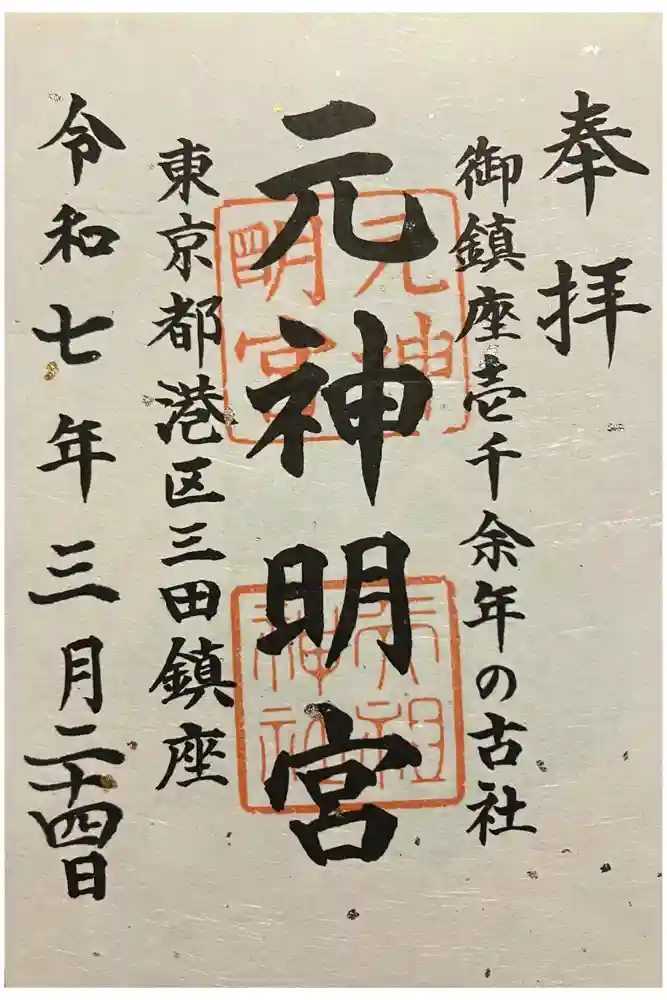 奉拝
御鎮座壱千余年の古社
元神明宮
東京都港区三田鎮座
令和七年三月二十四日
元神
明宮
天祖
神社